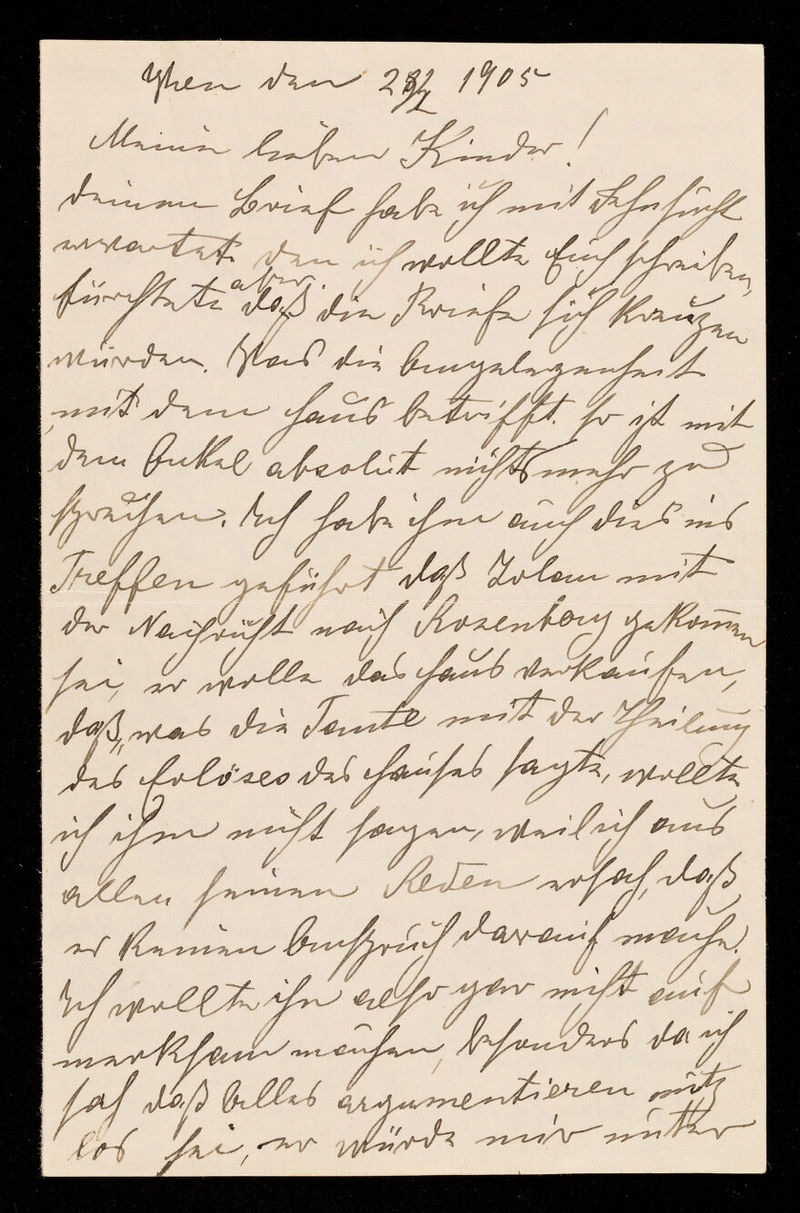 Wien den 2 1905
Meine lieben Kinder!
deinen Brief habe ich mit Sehnsucht
erwartet den ich wollte Euch schreiben,
fürchtete aber daß die Briefe sich kreuzen
würden. Was die Angelegenheit
mit dem Haus betrifft so ist mit
dem Onkel absolut nichts mehr zu
sprechen. Ich habe ihm auch dies ins
Treffen geführt daß Jolan mit
der Nachricht nach Rosenberg gekom̅en
sei, er wolle das Haus verkaufen,
daß, was die Tante mit der Theilung
des Erlöses des Hauses sagte, wollte
ich ihm nicht sagen, weil ich aus
allen seinen Reden ersah, daß
er keinen Anspruch darauf mache.
Ich wollte ihn also gar nicht auf
merksam machen, besonders da ich
sah daß Alles argumentieren nutz
los sei, er würde mir unter